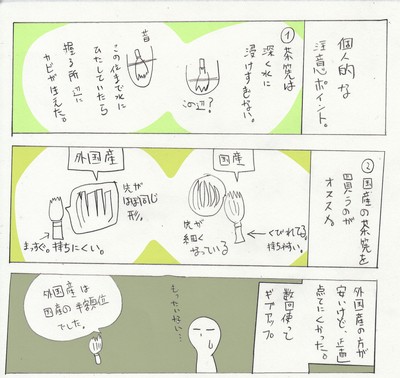 個人的な
注意ポイント。
①茶筅は
深く水に
浸けすぎない。
この辺?
昔
この位まで水に
ひたしていたら
握る所辺に
カビが生えた。
②国産の茶筅を
買うのが
オススメ
国産
←くびれてる。
持ち易い。
先が
細く
なっている
外国産
先が
ほぼ同じ
形。
まっすぐ。持ちにくい。
外国産の方が
安いけど、正直
点てにくかった。
数回使って
ギブアップ
もったいない…
外国産は
国産の半額位
でした。